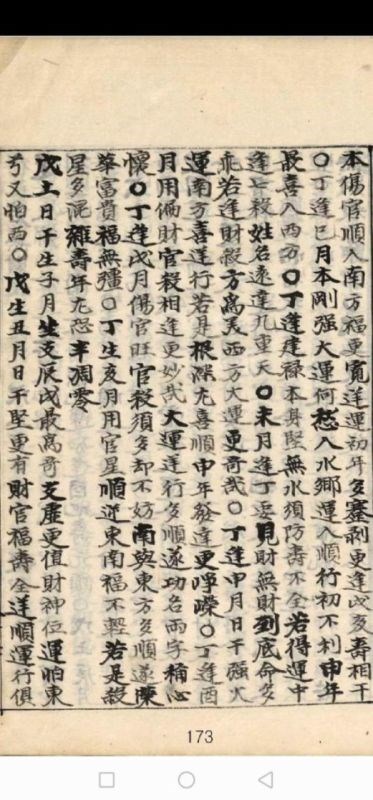 本傷官順入南方福更寬逆運初年多塞剥更逢戊亥壽相干
○丁逢巳月本剛强大運何愁入水鄉運入順行初不利申年
最喜入西方○丁逢建禄本身堅無水須防壽不全若得運中
逢七殺姓名遠達九重天○未月逢丁運見財無財到底命多
乖若逢財殺方為美西方大運更奇哉○丁逢申月日干强火
運南方喜逆行若是根深尤喜順申年發達更崢嶸○丁逢酉
月用偏財官殺相逢更妙哉大運逆行多順遂功名兩字稱心
懷○丁逢戌月傷官旺官殺須多却不妨南與東方多順遂榮
華富貴福無彊○丁生亥月用官星順逆東南福不輕若是殺
星多混雜壽年尤恐半凋零
戊土日干生子月坐支辰戌最為奇支虛更值財神位運怕東
兮又怕西○戊生丑月日干堅更有財官福壽全逆順運行俱
173